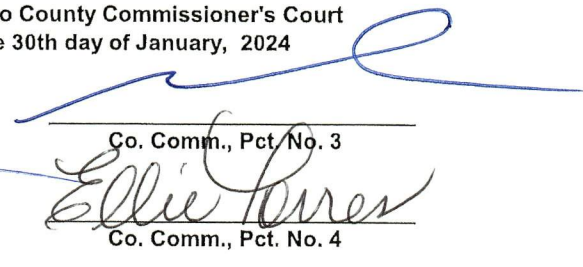 o County Commissioner's Court
e 30th day of January, 2024
Co. Comm., Pct. No. 3
Ellie Torres
Co. Comm., Pct. No. 4